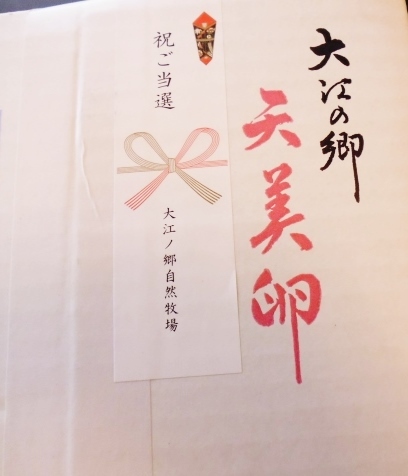 大江の郷
天美卵
祝ご当選
大江ノ郷自然牧場